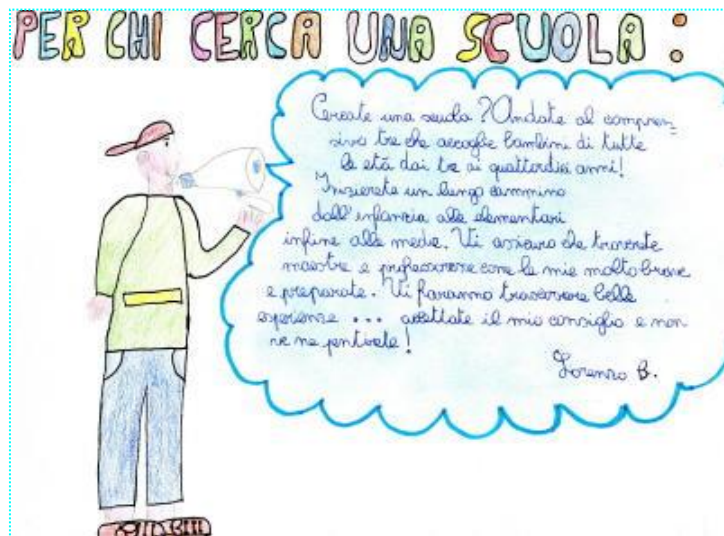 PER CHI CERCA UNA SCUOLA :
Cercate una scuola ? Andate al compren=
sivo tre che accoglie bambini di tutte
le età dai tre ai quattordici anni!
Inizierete un lungo cammino
dall'infanzia alle elementari
infine alle medie. Vi assicuro che troverete
maestre e professoresse come le mie molto brave
e preparate. Vi faranno trascorrere belle
esperienze ... accettate il mio consiglio e non
ve ne pentirete!
Lorenzo B.